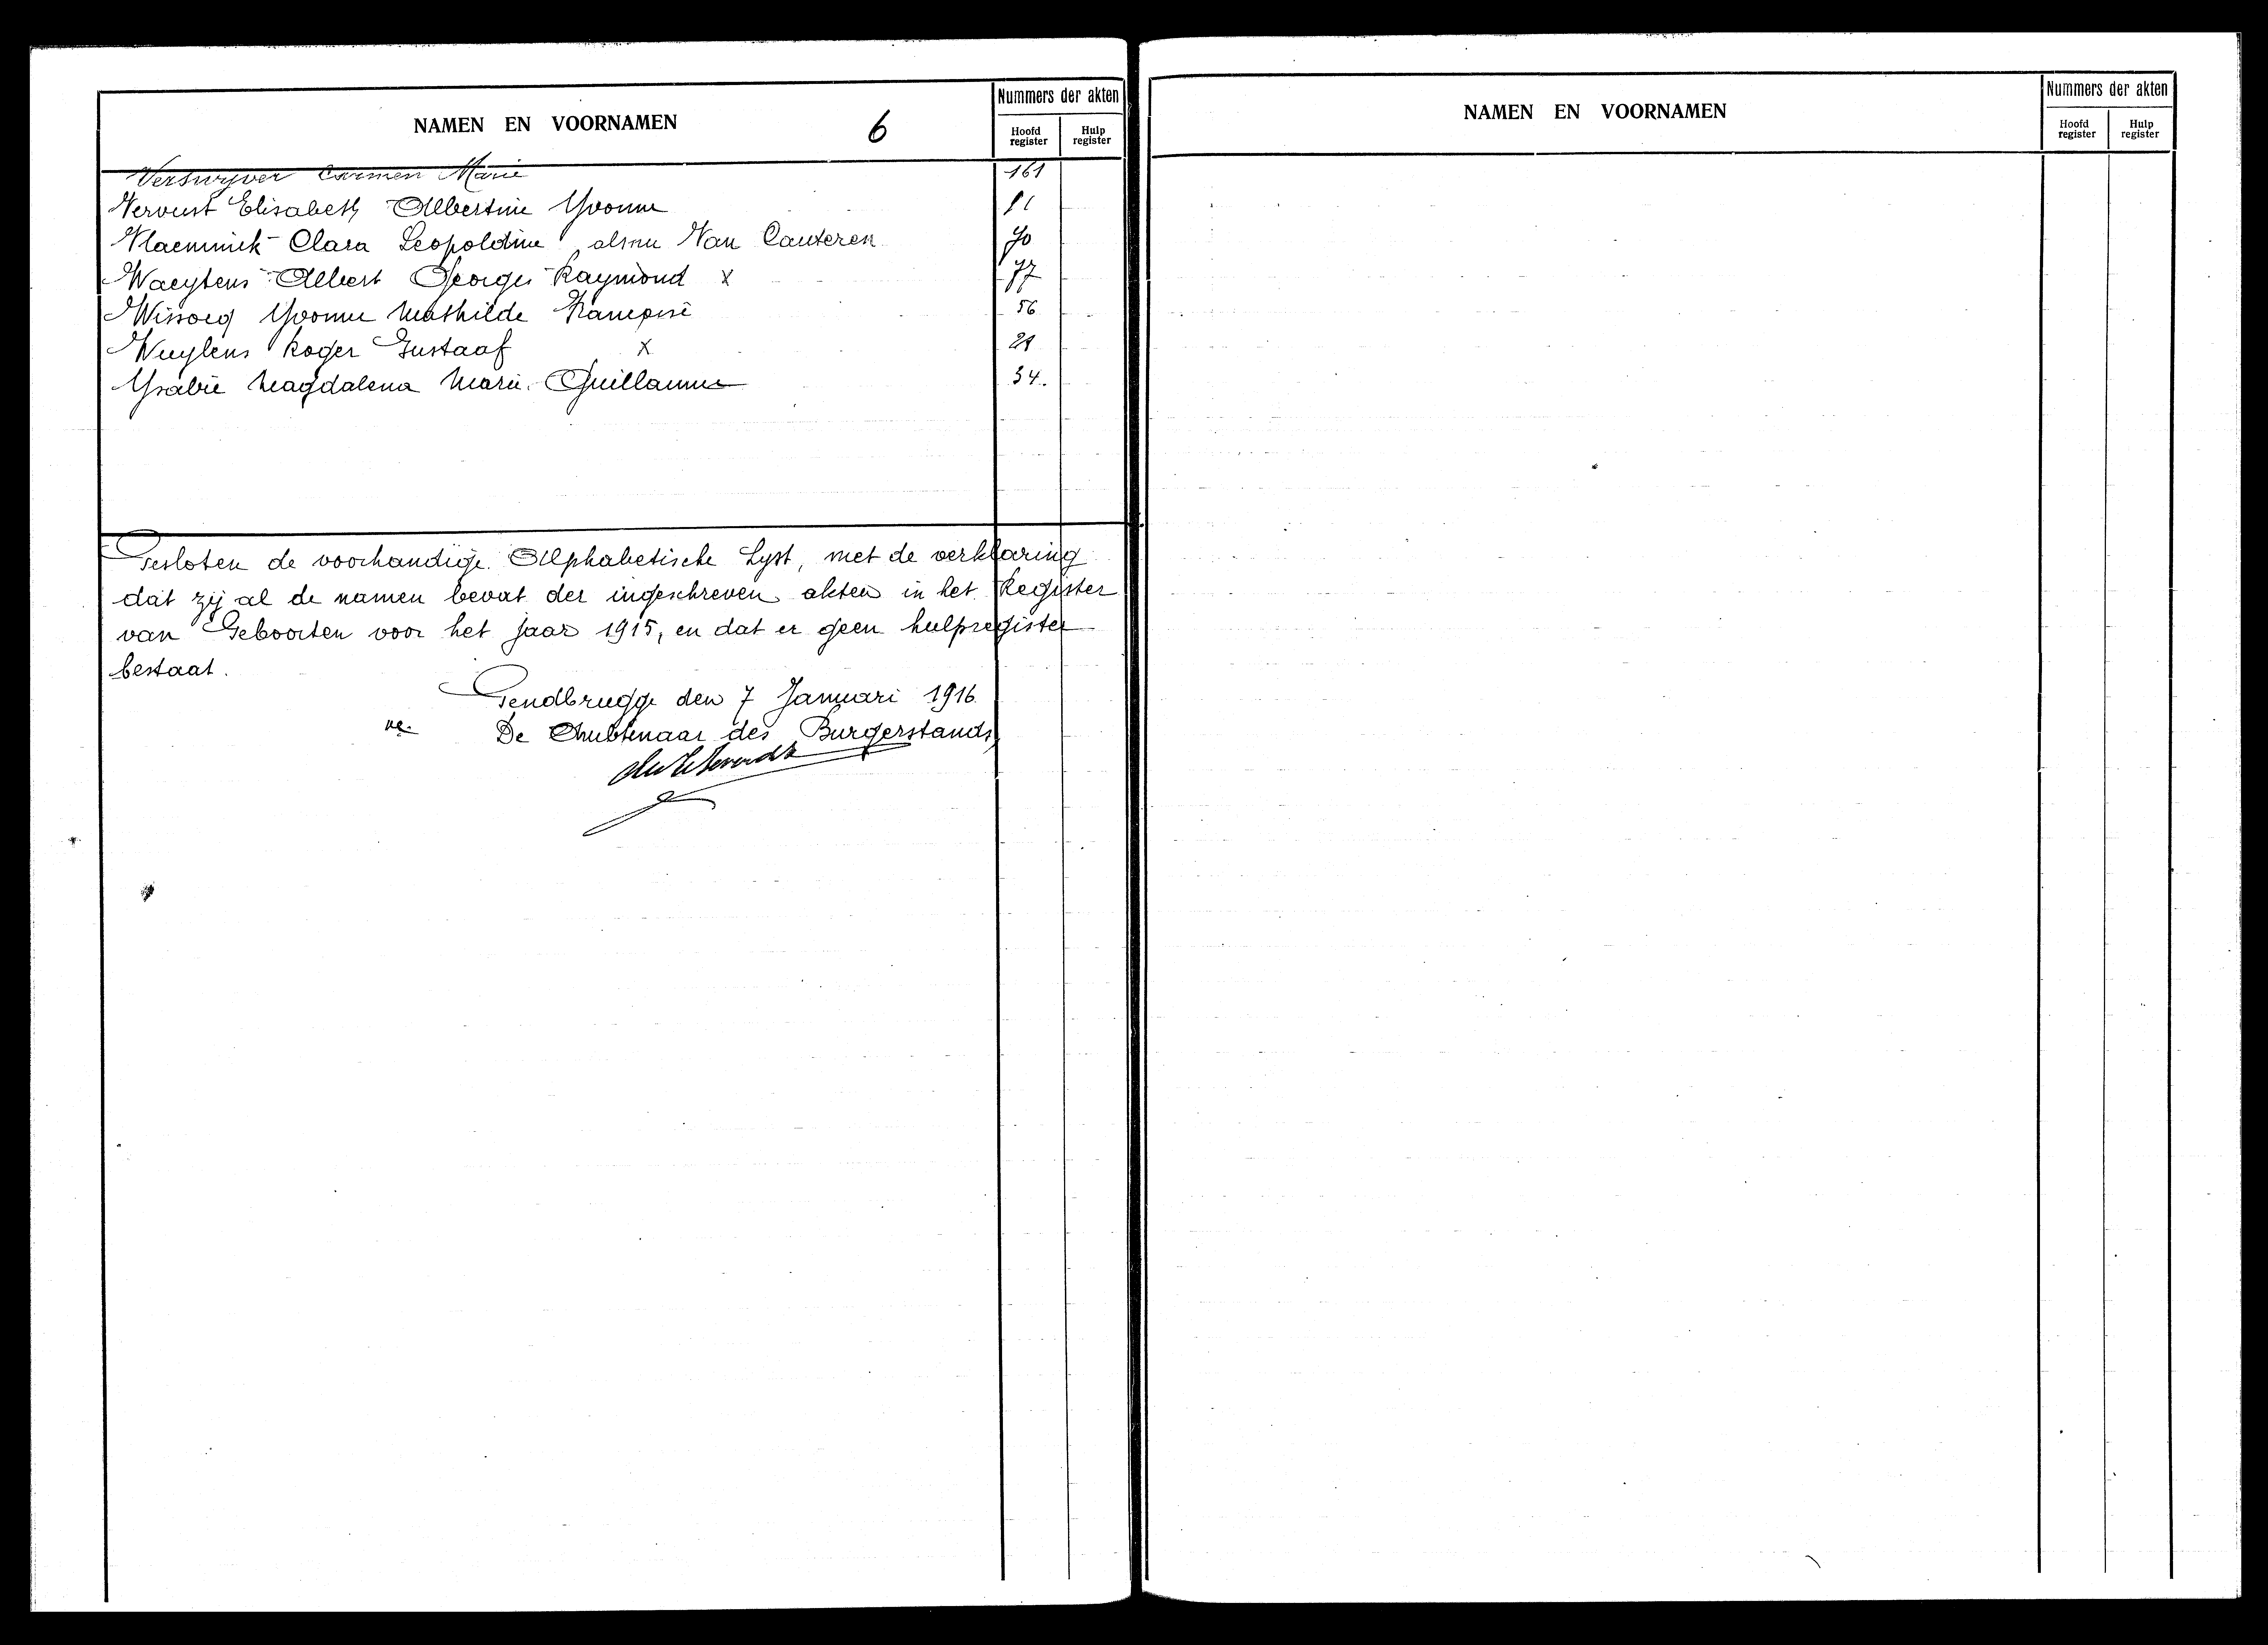 NAMEN EN VOORNAMEN
6
Nummers der akten
Hoofd register
Hulp register
Verswyver Carmen Marie 161
Vervust Elisabeth Albertine Yvonne
Vlaeminck Clara Leopoldine Van Cauteren 70
Waeytens Albert Georges Raymond x 77
Yvonne Mathilde Françoise 56
Wuylens Roger Gustaaf x 21
Ysabie Magdalena Marie Guillaume 34.
Gesloten de voorhandige Alphabetische Lyst, met de verklaring
dat zij al de namen bevat der ingeschreven akten in het Register
van Geboorten voor het jaar 1915, en dat er geen hulpregister
bestaat.
Gendbrugge den 7 Januari 1916
De Ambtenaar des Burgerstands,
NAMEN EN VOORNAMEN
Nummers der akten
Hoofd register
Hulp register